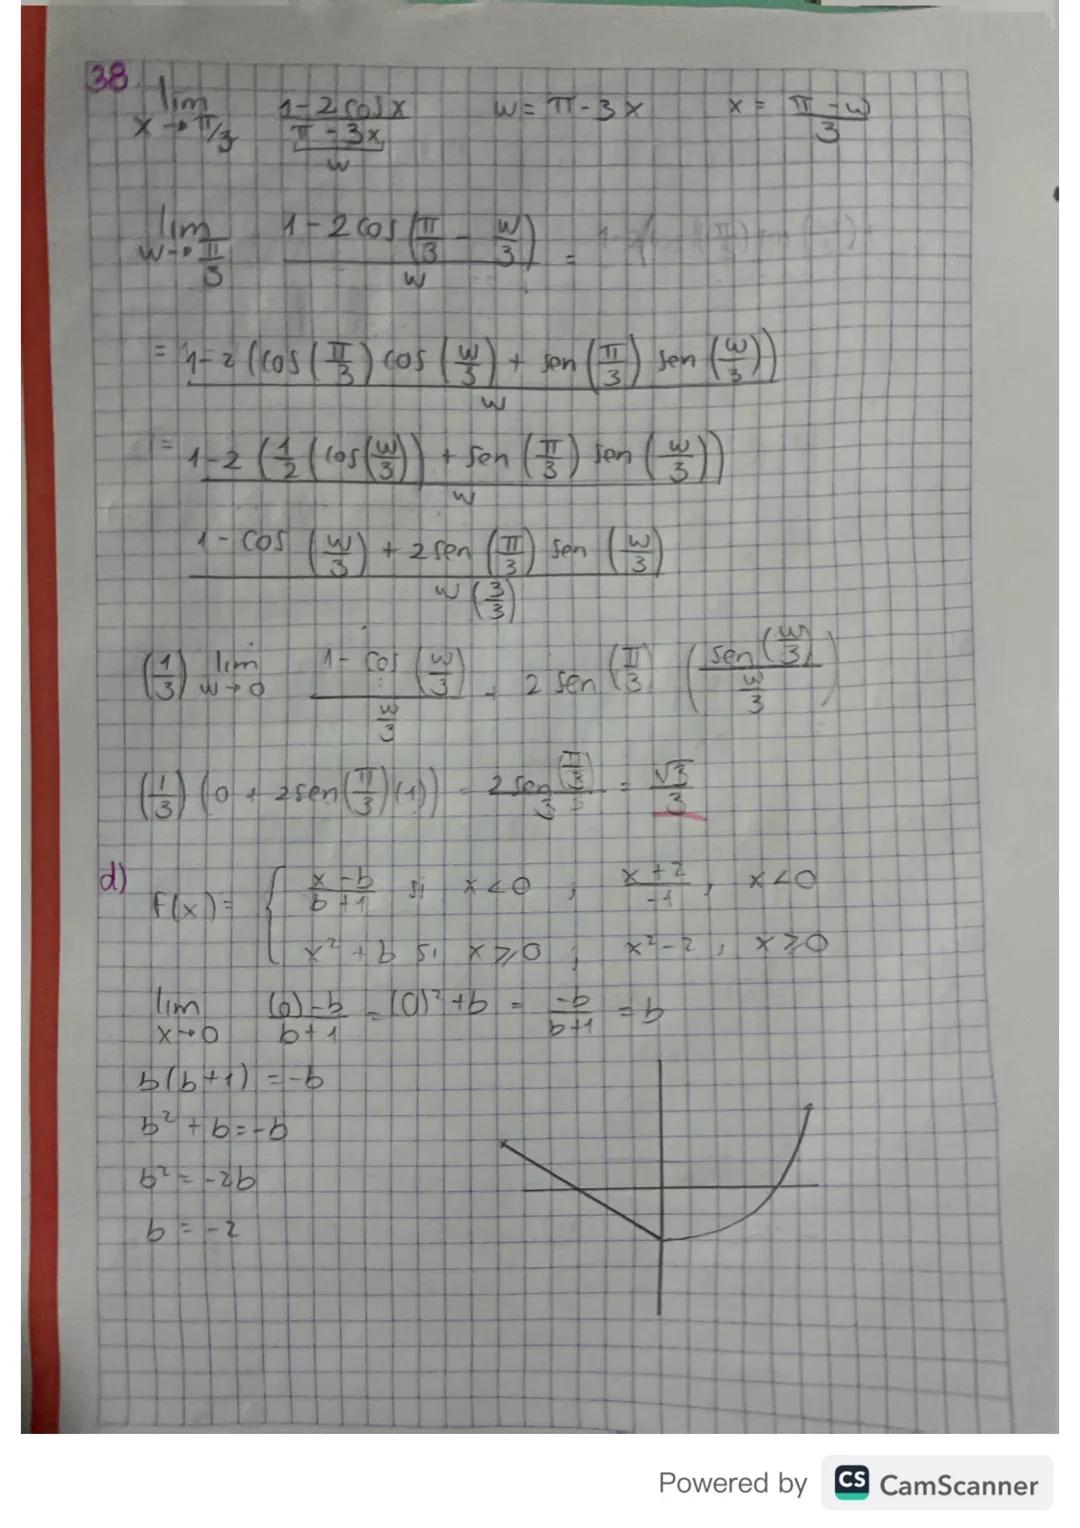 38. lim x→π/3 (1-2cosx)/(π-3x) w w = π-3x x = (π-w)/3
lim w→π/3 (1-2cos(π/3 - w/3))/w =
= (1-2(cos(π/3)cos(w/3) + sen(π/3) sen(w/3)))/w
= (1-2(1/2(cos(w/3)) + sen(π/3) sen(w/3)))/w
(1-cos(w/3) + 2sen(π/3) sen(w/3))/(w(3/3))
(1/3) lim w→0 (1-cos(w/3))/(w/3) + 2sen(π/3) (sen(w/3)/(w/3))
(1/3)(0 + 2sen(π/3)(1)) = 2sen(π/3)/3 = √3/3
d) f(x) = { (x-b)/(b+1) si x<0 ; (x+2)/-1 , x<0
x²+b si x≥0 ; x²-2 , x≥0
lim x→0 ((0)-b)/(b+1) = (0)²+b = -b/(b+1) = b
b(b+1) = -b
b²+b=-b
b² = -2b
b = -2
Powered by CS CamScanner